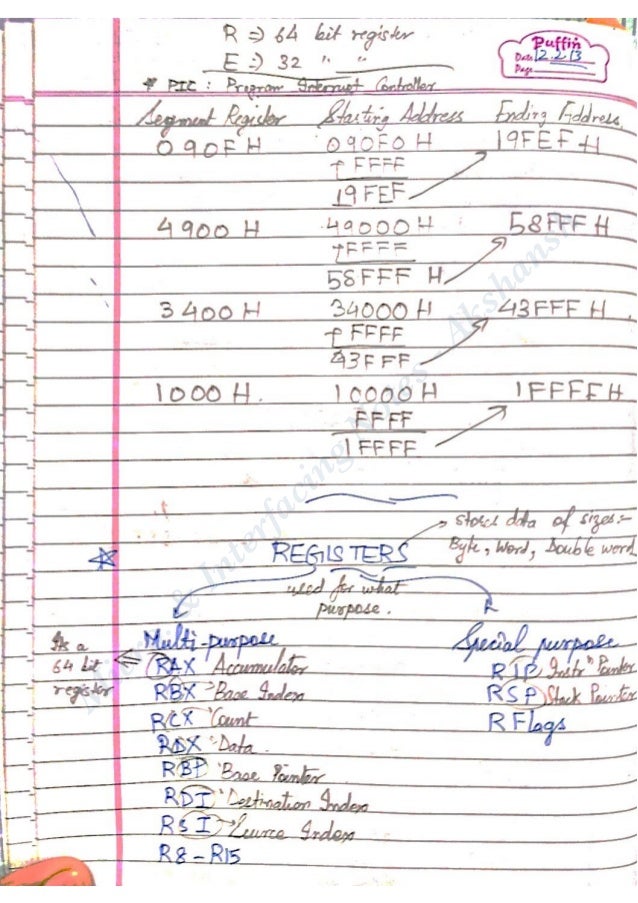 R ⇒ 64 bit register
E ⇒ 32 " "
Puffin
Date 12.2.13
Page
* PIC : Program Interrupt Controller
Segment Register Starting Address Ending Address
090F H 090F0 H 19FEF H
+ FFFF
19FEF
4900 H 49000 H 58FFF H
+ FFFF
58FFF H
3400 H 34000 H 43FFF H
+ FFFF
43FFF
1000 H. 10000 H 1FFFF H
FFFF
1FFFF
REGISTERS → stores data of sizes:-
Byte, Word, Double word
used for what
purpose.
Multi-purpose Special purpose
Its a
64 bit
register
RAX Accumulator RIP Instrⁿ Pointer
RBX Base Index RSP Stack Pointer
RCX Count R Flags
RDX Data
RBP Base Pointer
RDI Destination Index
RSI Source Index
R8 - R15
& Interfacing Notes Akshansh